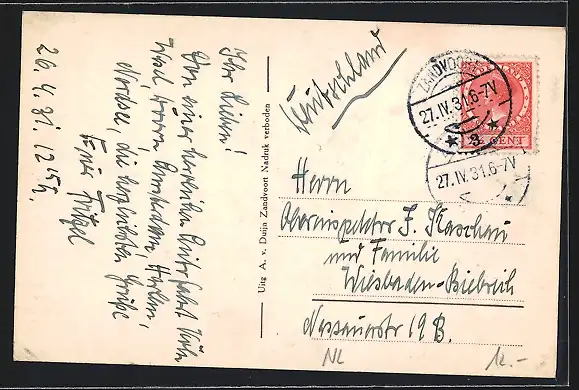 26.4.31. 12 5/4
Ihr Lieben!
Von einer herrlichen Autofahrt Köln
Amsterdam, Harlem,
Nordsee, die herzlichsten Grüße
Fritzel
Uitg A. v. Duijn Zandvoort Nadruk verboden
Deutschland
ZANDVOORT
27.IV.31.6-7V
3
CENT
27.IV.31.6-7V
Herrn
Oberinspektor F. Kaschau
und Familie
Wiesbaden-Biebrich
Nassauerstr 19 B.
NL
12.-